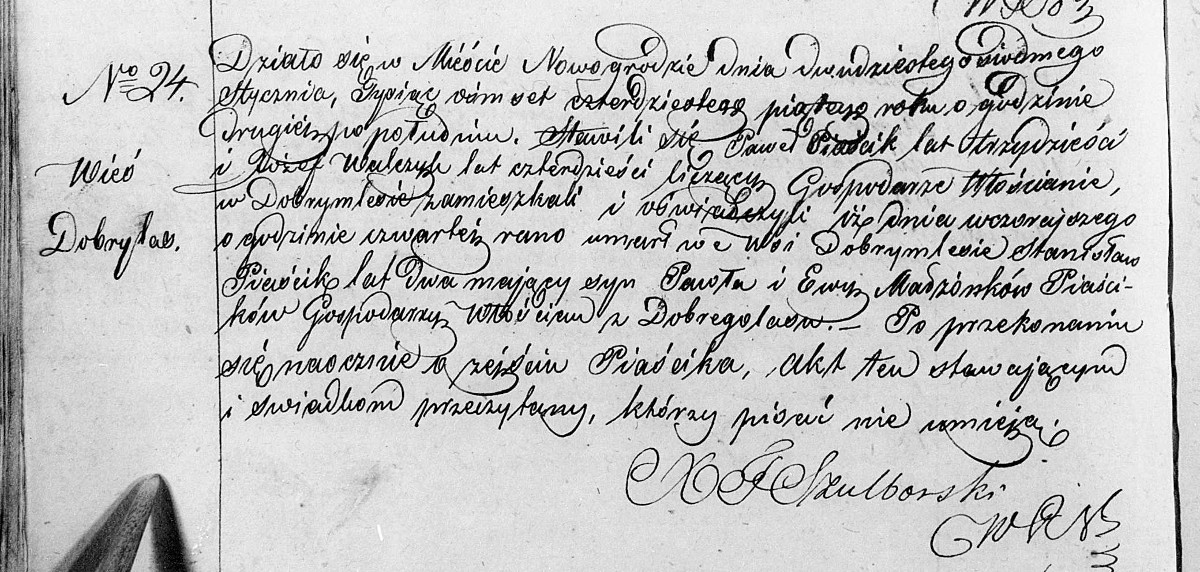 No 24.
Wieś
Dobrylas.
Działo się w Mieście Nowogrodzie dnia dwudziestego siódmego
Stycznia, Tysiąc ośmset czterdziestego piątego roku o godzinie
drugiéj po południu. Stawili się Paweł Piaścik lat trzydzieści
i Józef Walczyk lat czterdzieści liczący Gospodarze Włościanie,
w Dobrymlesie zamieszkali i oświadczyli iż dnia wczorajszego
o godzinie czwartéj rano umarł we wsi Dobrymlesie Stanisław
Piaścik lat dwa mający syn Pawła i Ewy Madzónków Piaści-
ków Gospodarzy Włościan z Dobregolasu. — Po przekonaniu
się naocznie o zejściu Piaścika, akt ten stawającym
i świadkom przeczytany, którzy pisać nie umieją.
X F Szulborski